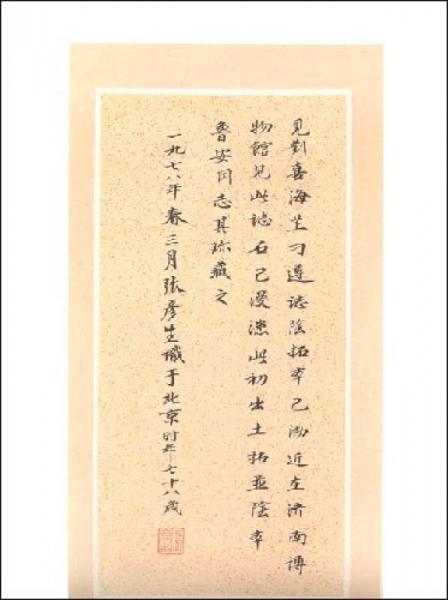 見劉喜海[…]刁遵誌陰拓本已泐近在濟南博
物館見此誌石已漫漶此初出土拓並陰本
魯安同志其珍藏之
一九七八年春三月張彦生識于北京时年七十八歲